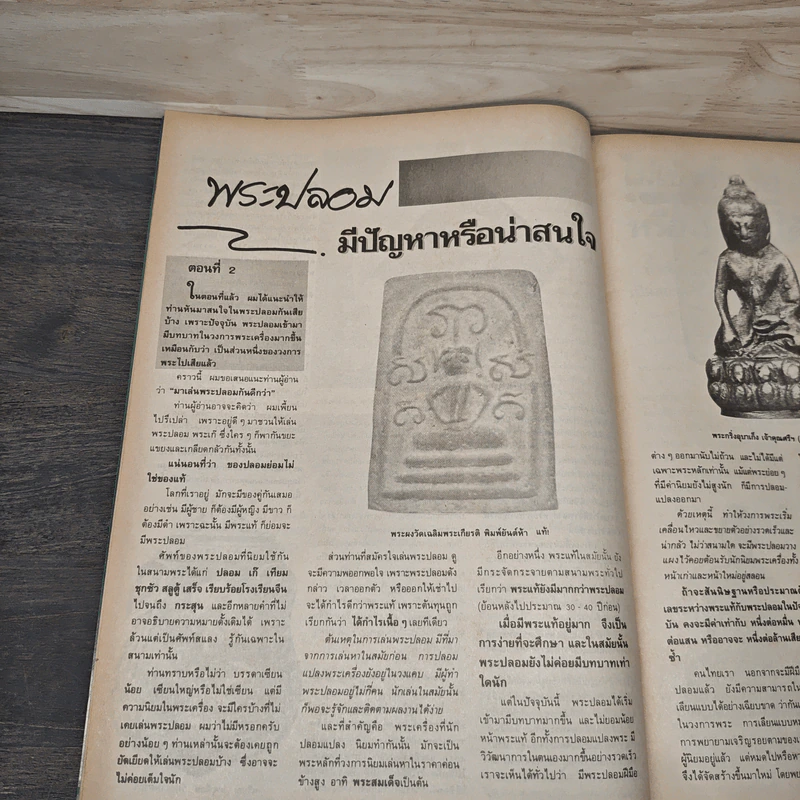 พระปลอม
มีปัญหาหรือน่าสนใจ
ตอนที่ 2
ในตอนที่แล้ว ผมได้แนะนำให้
ท่านหันมาสนใจในพระปลอมกันเสีย
บ้าง เพราะปัจจุบัน พระปลอมเข้ามา
มีบทบาทในวงการพระเครื่องมากขึ้น
เหมือนกับว่า เป็นส่วนหนึ่งของวงการ
พระไปเสียแล้ว
คราวนี้ ผมขอเสนอแนะท่านผู้อ่าน
ว่า "มาเล่นพระปลอมกันดีกว่า"
ท่านผู้อ่านอาจจะคิดว่า ผมเพี้ยน
ไปรึเปล่า เพราะอยู่ดี ๆ มาชวนให้เล่น
พระปลอม พระเก๊ ซึ่งใคร ๆ ก็พากันขยะ
แขยงและเกลียดกลัวกันทั้งนั้น
แน่นอนที่ว่า ของปลอมย่อมไม่
ใช่ของแท้
โลกที่เราอยู่ มักจะมีของคู่กันเสมอ
อย่างเช่น มีผู้ชาย ก็ต้องมีผู้หญิง มีขาว ก็
ต้องมีดำ เพราะฉะนั้น มีพระแท้ ก็ย่อมจะ
มีพระปลอม
ศัพท์ของพระปลอมที่นิยมใช้กัน
ในสนามพระได้แก่ ปลอม เก๊ เทียม
ชุกชัว สลูตู้ เสร็จ เรียบร้อยโรงเรียนจีน
ไปจนถึง กระสุน และอีกหลายคำที่ไม่
อาจอธิบายความหมายดั้งเดิมได้ เพราะ
ล้วนแต่เป็นศัพท์สแลง รู้กันเฉพาะใน
สนามเท่านั้น
ท่านทราบหรือไม่ว่า บรรดาเซียน
น้อย เซียนใหญ่หรือไม่ใช่เซียน แต่มี
ความนิยมในพระเครื่อง จะมีใครบ้างที่ไม่
เคยเล่นพระปลอม ผมว่าไม่มีหรอกครับ
อย่างน้อย ๆ ท่านเหล่านั้นจะต้องเคยถูก
ยัดเยียดให้เล่นพระปลอมบ้าง ซึ่งอาจจะ
ไม่ค่อยเต็มใจนัก
พระผงวัดเฉลิมพระเกียรติ พิมพ์ยันต์ห้า แท้!
ส่วนท่านที่สมัครใจเล่นพระปลอม ดู
จะมีความพออกพอใจ เพราะพระปลอมดัง
กล่าว เวลาออกตัว หรือออกให้เช่าไป
จะได้กำไรดีกว่าพระแท้ เพราะต้นทุนถูก
เรียกกันว่า ได้กำไรเนื้อ ๆ เลยทีเดียว
ต้นเหตุในการเล่นพระปลอม มีที่มา
จากการเล่นหาในสมัยก่อน การปลอม
แปลงพระเครื่องยังอยู่ในวงแคบ มีผู้ทำ
พระปลอมอยู่ไม่กี่คน นักเล่นในสมัยนั้น
ก็พอจะรู้จักและติดตามผลงานได้ง่าย
และที่สำคัญคือ พระเครื่องที่นัก
ปลอมแปลง นิยมทำกันนั้น มักจะเป็น
พระหลักที่วงการนิยมเล่นหาในราคาค่อน
ข้างสูง อาทิ พระสมเด็จเป็นต้น
อีกอย่างหนึ่ง พระแท้ในสมัยนั้น ยัง
มีกระจัดกระจายตามสนามพระทั่วไป
เรียกว่า พระแท้ยังมีมากกว่าพระปลอม
(ย้อนหลังไปประมาณ 30 - 40 ปีก่อน)
เมื่อมีพระแท้อยู่มาก จึงเป็น
การง่ายที่จะศึกษา และในสมัยนั้น
พระปลอมยังไม่ค่อยมีบทบาทเท่า
ใดนัก
แต่ในปัจจุบันนี้ พระปลอมได้เริ่ม
เข้ามามีบทบาทมากขึ้น และไม่ยอมน้อย
หน้าพระแท้ อีกทั้งการปลอมแปลงพระ มี
วิวัฒนาการในตนเองมากขึ้นอย่างรวดเร็ว
เราจะเห็นได้ทั่วไปว่า มีพระปลอมฝีมือ
พระกริ่งอุบาเก็ง เจ้าคุณศรีฯ (
ต่าง ๆ ออกมานับไม่ถ้วน และไม่ได้มีแต่
เฉพาะพระหลักเท่านั้น แม้แต่พระย่อย ๆ
ที่มีค่านิยมยังไม่สูงนัก ก็มีการปลอม-
แปลงออกมา
ด้วยเหตุนี้ ทำให้วงการพระเริ่ม
เคลื่อนไหวและขยายตัวอย่างรวดเร็วและ
น่ากลัว ไม่ว่าสนามใด จะมีพระปลอมวาง
แผงไว้คอยต้อนรับนักนิยมพระเครื่องทั้ง
หน้าเก่าและหน้าใหม่อยู่ตลอด
ถ้าจะสันนิษฐานหรือประมาณตั
เลขระหว่างพระแท้กับพระปลอมในปัจ
บัน คงจะมีค่าเท่ากับ หนึ่งต่อหมื่น ห
ต่อแสน หรืออาจจะ หนึ่งต่อล้านเสีย
ซ้ำ
คนไทยเรา นอกจากจะมีฝีมือ
ปลอมแล้ว ยังมีความสามารถใน
เลียนแบบได้อย่างเฉียบขาด ว่ากัน
ในวงการพระ การเลียนแบบหม
การพยายามเจริญรอยตามของเ
ผู้นิยมอยู่แล้ว แต่หมดไปหรือห
จึงได้จัดสร้างขึ้นมาใหม่ โดยพย